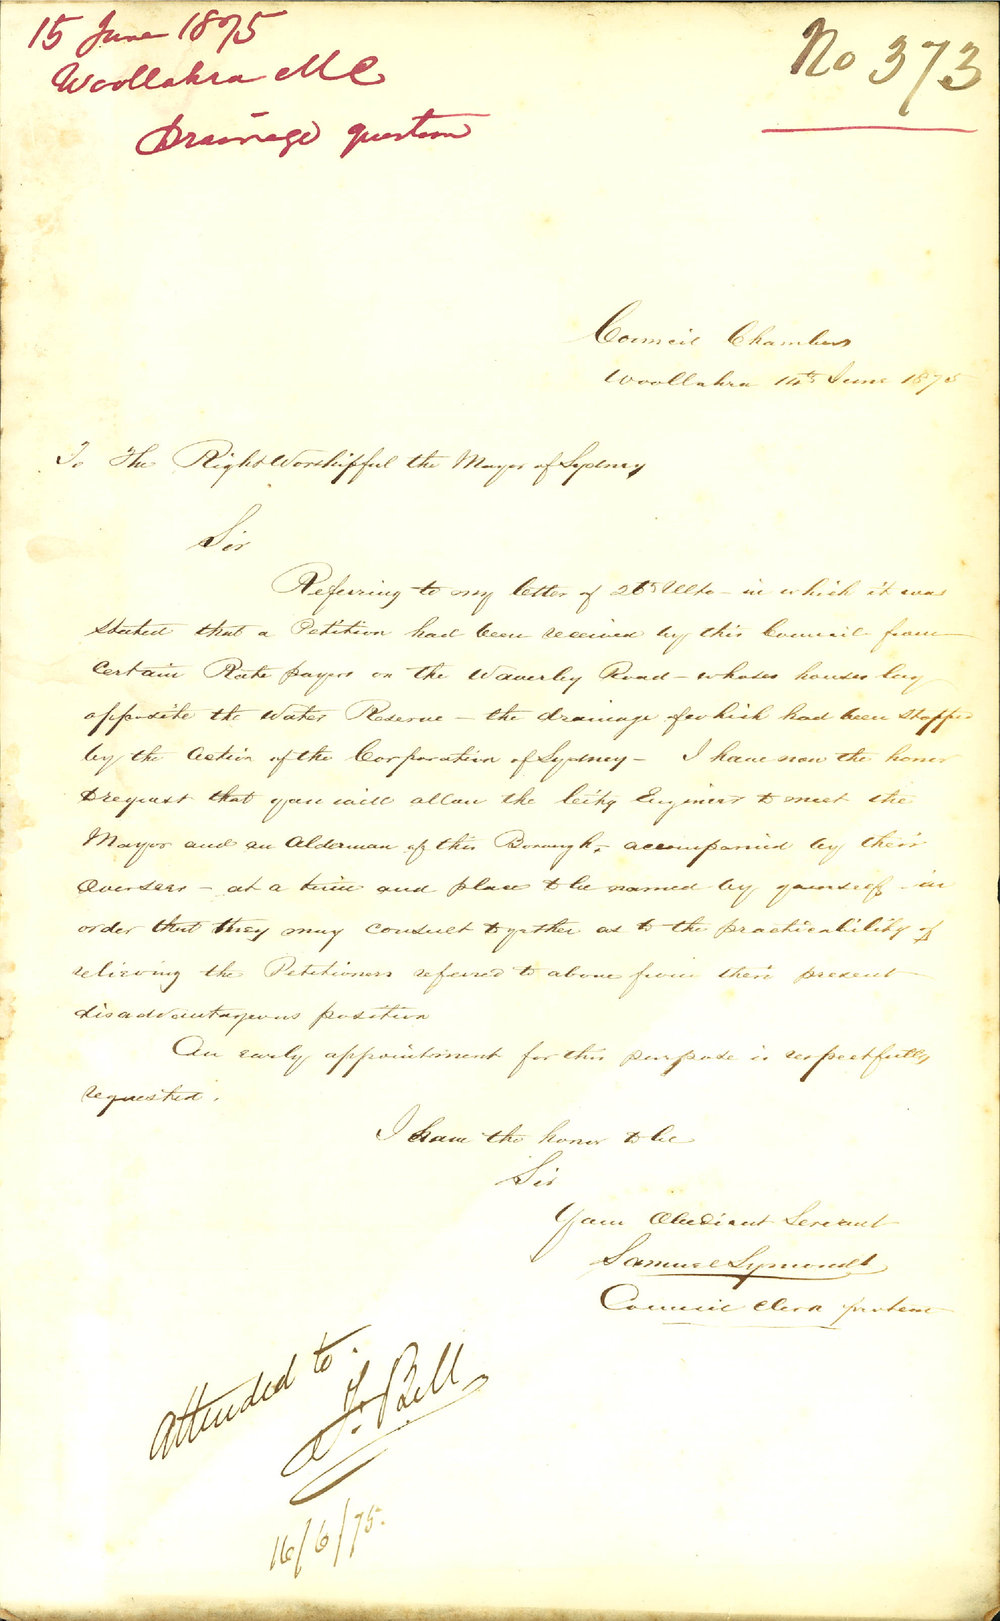 15 June 1875
Woollahra MC
Drainage question
No 373
Council Chambers
Woollahra 14th June 1875
To The Right Worshipful the Mayor of Sydney
Sir
Referring to my letter of Ulto – in which it was
stated that a Petition had been received by this Council from
certain Rate payers on the Waverley Road – whose houses lay
opposite the Water Reserve – the drainage of which had been stopped
by the Action of the Corporation of Sydney – I have now the honor
to request that you will allow the City Engineer to meet the
Mayor and an Alderman of this Borough, accompanied by their
Overseer – at a time and place to be named by yourself – in
order that they may consult together as to the practicability of
relieving the Petitioners referred to above from their present
disadvantageous position
An early appointment for this purpose is respectfully
requested.
I have the honor to be
Sir
Your Obedient Servant
Samuel Symonds
Council Clerk protem
Attended to.
F. Bell
16/6/75.